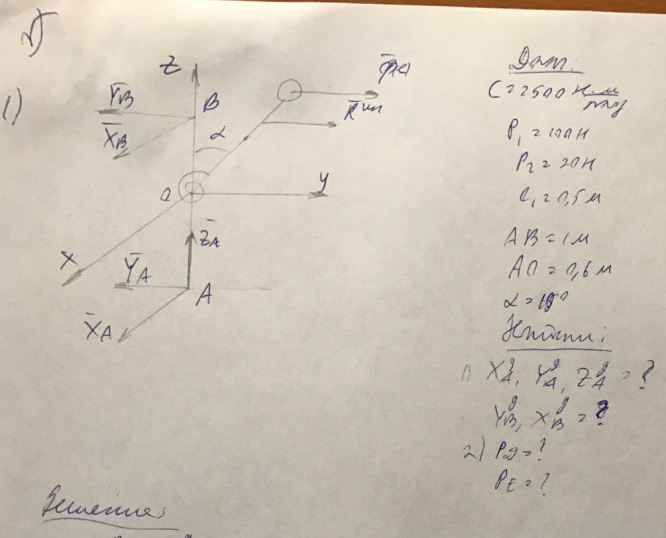 1)
Z
Y̅_B
B
X̅_B
α
O
Y
Z̅_A
X
Y̅_A
A
X̅_A
Дано:
C=2500 Н·м/рад
P₁=100Н
P₂=20Н
ℓ₁=0,5м
AB=1м
AO=0,6м
Найти:
1) X_A^g, Y_A^g, Z_A^g = ?
Y_B^g, X_B^g = ?
2) P_D=?
P_E=?
Решение: